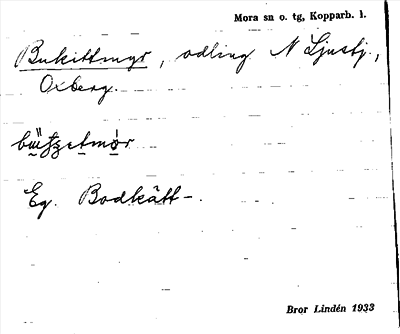 Mora sn o. tg, Kopparb. l.
Bukittmyr, odling N Ljusbj.,
Oxberg.
Eg. Bodkätt-.
Bror Lindén 1933